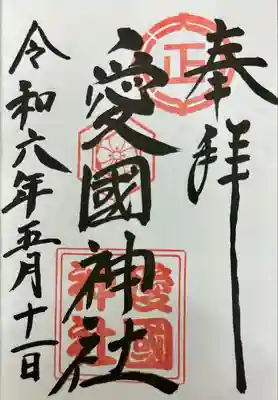 奉拝
正
愛國神社
愛國
神社
令和六年五月十一日